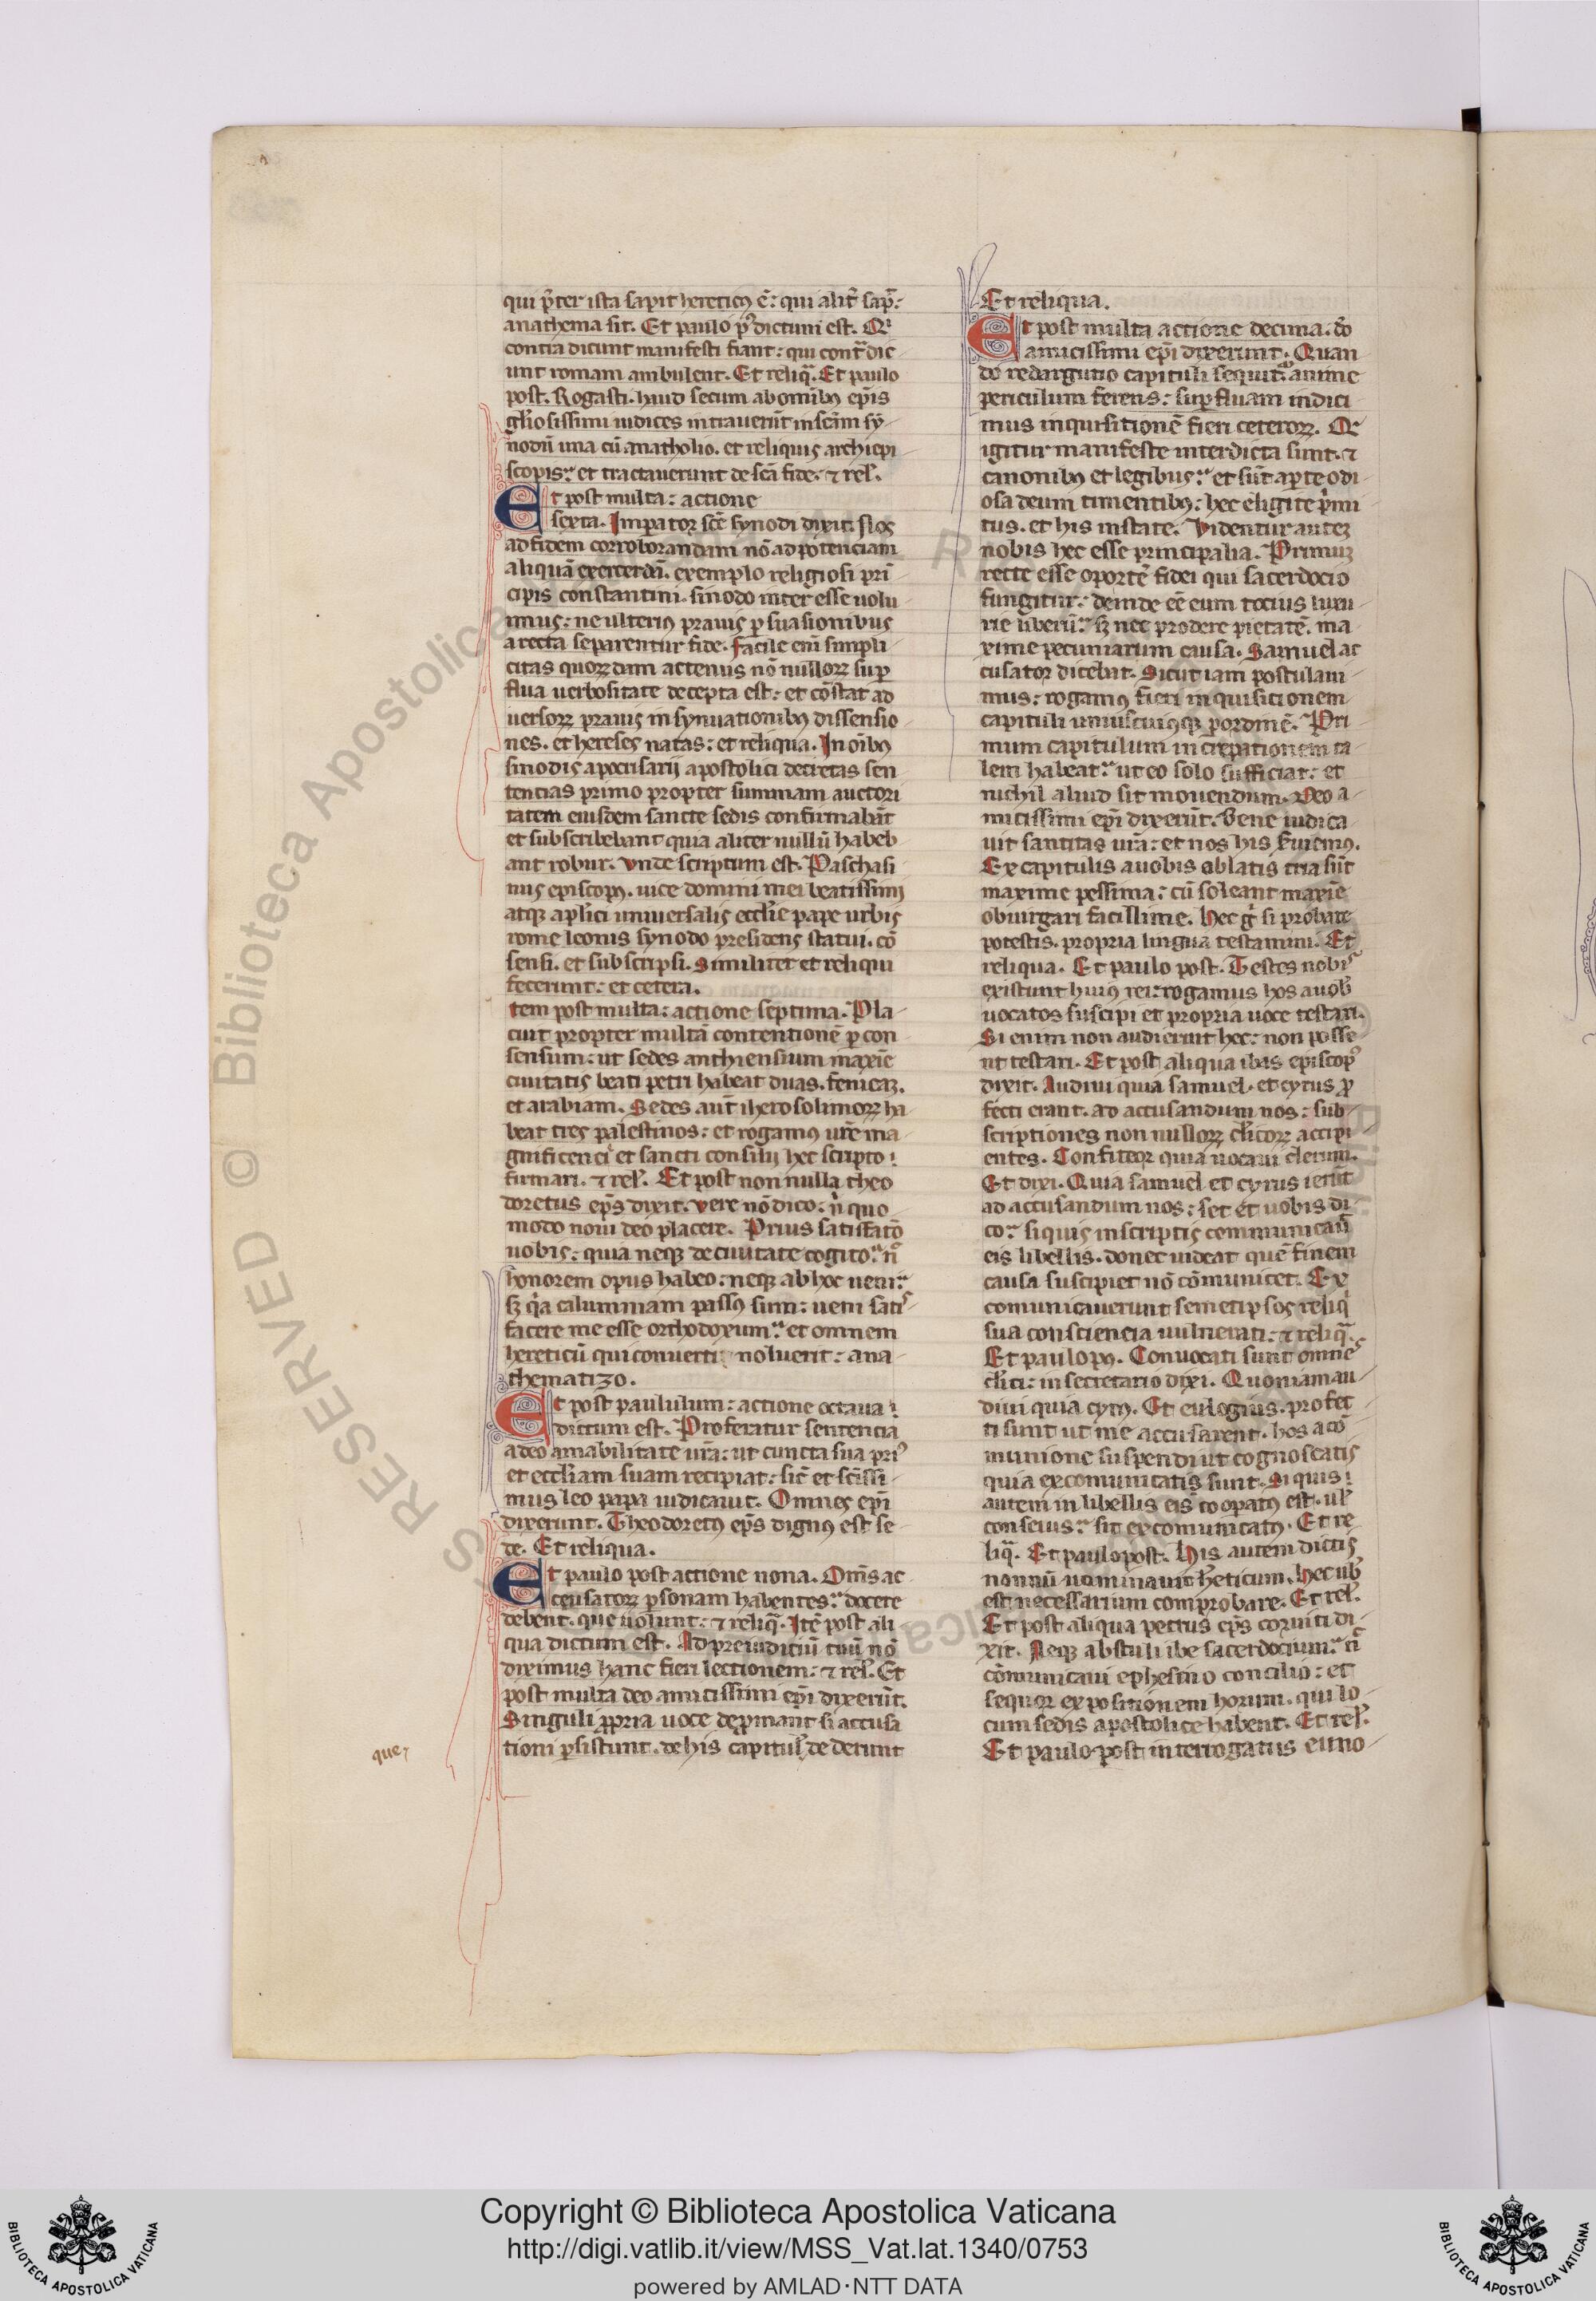 qui p̄ter ista sapit hereticꝰ ē: qui alit̄ sap̄:
anathema sit. Et paulo p̄ꝰ dictum est. Qͥ
contra dicunt manifesti fiant: qui cont̄ dic-
unt romam ambulent. Et reliq̄. Et paulo
post. Rogasti. huid secum ab omībꝰ ep̄is
gl̄iosissimi iudices intrauerūt in sc̄am sy-
nodū una cū anatholio. et reliquis archiepi-
scopis: et tractauerunt de sc̄a fide. ⁊ rel̄.
Et post multa: actione
sexta. Imperator sc̄e synodi dixit. Nos
ad fidem corroborandam nō ad potenciam
aliquā exercendā. exemplo religiosi prī-
cipis constantini. sinodo inter esse uolu-
imus: ne ulteriꝰ prauis ꝑsuasionibus
a recta separentur fide. Facile eni simpli-
citas quorꝝdam actenus nō nullorꝝ suꝑ-
flua uerbositate decepta est: et cōstat ad
uersorꝝ prauis insynuationibꝰ dissensio-
nes. et hereses natas: et reliqua. In oībꝰ
sinodis apocrisarij apostolici decretas sen-
tencias primo propter summam auctori
tatem eiusdem sancte sedis confirmabāt
et subscribebant quia aliter nullū habeb
ant robur. vnde scriptum est. Paschasi-
nus episcopꝰ. uice domini mei beatissimi
atqꝫ apl̄ici uniuersalis eccl̄ie pape urbis
rome leonis synodo presidens statui. cō
sensi. et subscripsi. Similiter et reliqui
fecerunt: et cetera.
tem post multa: actione septima. Pla-
cuit propter multā contentionē ꝑ con
sensum: ut sedes anthiensium maxīe
ciuitatis beati petri habeat duas. fenicaꝫ.
et arabiam. Sedes aut̄ iherosolimorꝝ ha
beat tres palestinos: et rogamꝰ ur̄e ma-
gnificenci et sancti consilij hec scripto
firmari. ⁊ rel̄. Et post non nulla theo
doretus ep̄s dixit. vere nō dico: n̄ quo
modo noui deo placere. Prius satisfatō
uobis: quia neqꝫ de ciuitate cogito: n̄
honorem opus habeo: neqꝫ ab hoc ueni:
sꝫ q̄a calumniam passꝰ sum: ueni satis-
facere me esse orthodoxum: et omnem
hereticū qui conuerti noluerit: ana-
thematizo.
Et post paululum: actione octaua
dictum est. Proferatur sentencia
a deo amabilitate ur̄a: ut cuncta sua priꝰ
et eccl̄iam suam recipiat: sic̄ et sc̄issi-
mus leo papa iudicauit. Omnes ep̄i
dixerunt. Theodoretꝰ ep̄s dignꝰ est se-
de. Et reliqua.
Et paulo post actione nona. Om̄s ac-
ceusatorꝝ ꝑsonam habentes: docere
debent. que uolunt: ⁊ reliq̄. Itē post ali
qua dictum est. Ad preiudiciū tuū nō
diximus hanc fieri lectionem: ⁊ rel̄. Et
post multa deo amicissimi ep̄i dixerūt.
Singuli ꝓpria uoce deꝓmant si accusa
tioni ꝑsistunt. de his capitul̄ de derunt
que;
Et reliqua.
Et post multa actione decima. do
amicissimi ep̄i dixerunt. Quan-
do redargutio capituli sequit̄ anime
periculum ferens: suꝑfluam indici-
mus inquisitionē fieri ceterorꝝ. Q̄
igitur manifeste interdicta sunt. ⁊
canonibꝰ et legibus: et sūt aperte odi-
osa deum timentibꝰ: hec eligite p̄mi-
tus. et his instate. Videntur auteꝫ
nobis hec esse principalia. Primuꝫ
recte esse oportē fidei qui sacerdocio
fungitur: deinde eē eum tocius luxu-
rie liberū: sꝫ nec prodere pietatē. ma-
xime pecuniarum causa. Samuel ac
cusator dicebat. Sicut iam postulaui-
mus: rogamꝰ fieri inquisicionem
capituli uniuscuiꝰqꝫ ꝑ ordinē. Pri-
mum capitulum increpationem ta-
lem habeat: ut eo solo sufficiat: et
nichil aliud sit mouendum. Deo a-
micissimi ep̄i dixerūt. Bene iudica-
uit santitas ur̄a: et nos his
Ex capitulis a uobis oblatis tria sūt
maxime pessima: cū soleant maxīe
obiurgari facillime. Hec g̊ si probare
potestis. propria lingua testamini. Et
reliqua. Et paulo post. Testes nobis
existunt huiꝰ rei: rogamus hos a uob̄
uocatos suscipi et propria uoce testari.
Si enim non audierint hec: non posse
nt testari. Et post aliqua ibas episcopꝰ
dixit. Audiui quia samuel. et cyrus ꝓ
fecti erant. ad accusandum nos: sub-
scriptiones non nullorꝝ cl̄icorꝝ accipi-
entes. Confiteor quia uocaui clerum.
Et dixi. Quia samuel et cyrus ierūt
ad accusandum nos: set et uobis di-
co: si quis inscriptis communicau̅
eis libellis. donec uideat quē finem
causa suscipiet nō cōmunicet. Ex
comunicauerunt semetipsos reliq̄
sua consciencia uulnerati: ⁊ reliq̄.
Et paulo pꝰ. Conuocati sunt omnes
cl̄ici: in secretario dixi. Quoniam au-
diui quia cyrꝰ. Et eulogius. profec-
ti sunt ut me accusarent. hos a cō
munione suspendi ut cognoscatis
quia excomunicatis sunt. Si quis
autem in libellis eis cooperatꝰ est. ul̄
conscius: sit excomunicatꝰ. Et re-
liq̄. Et paulo post. His autem dictis
nonnū nominauit hēticum. Hec ub̄
est necessarium comprobare. Et rel̄.
Et post aliqua petrus ep̄s coruiti di-
xit. Neqꝫ abstuli ibe sacerdocium: n̄
cōmunicaui ephesino concilio: et
sequor expositionem horum. qui lo-
cum sedis apostolice habent. Et rel̄.
Et paulo post interrogatus euno-
Copyright © Biblioteca Apostolica Vaticana
http://digi.vatlib.it/view/MSS_Vat.lat.1340/0753
powered by AMLAD·NTT DATA
BIBLIOTECA APOSTOLICA VATICANA
BIBLIOTECA APOSTOLICA VATICANA